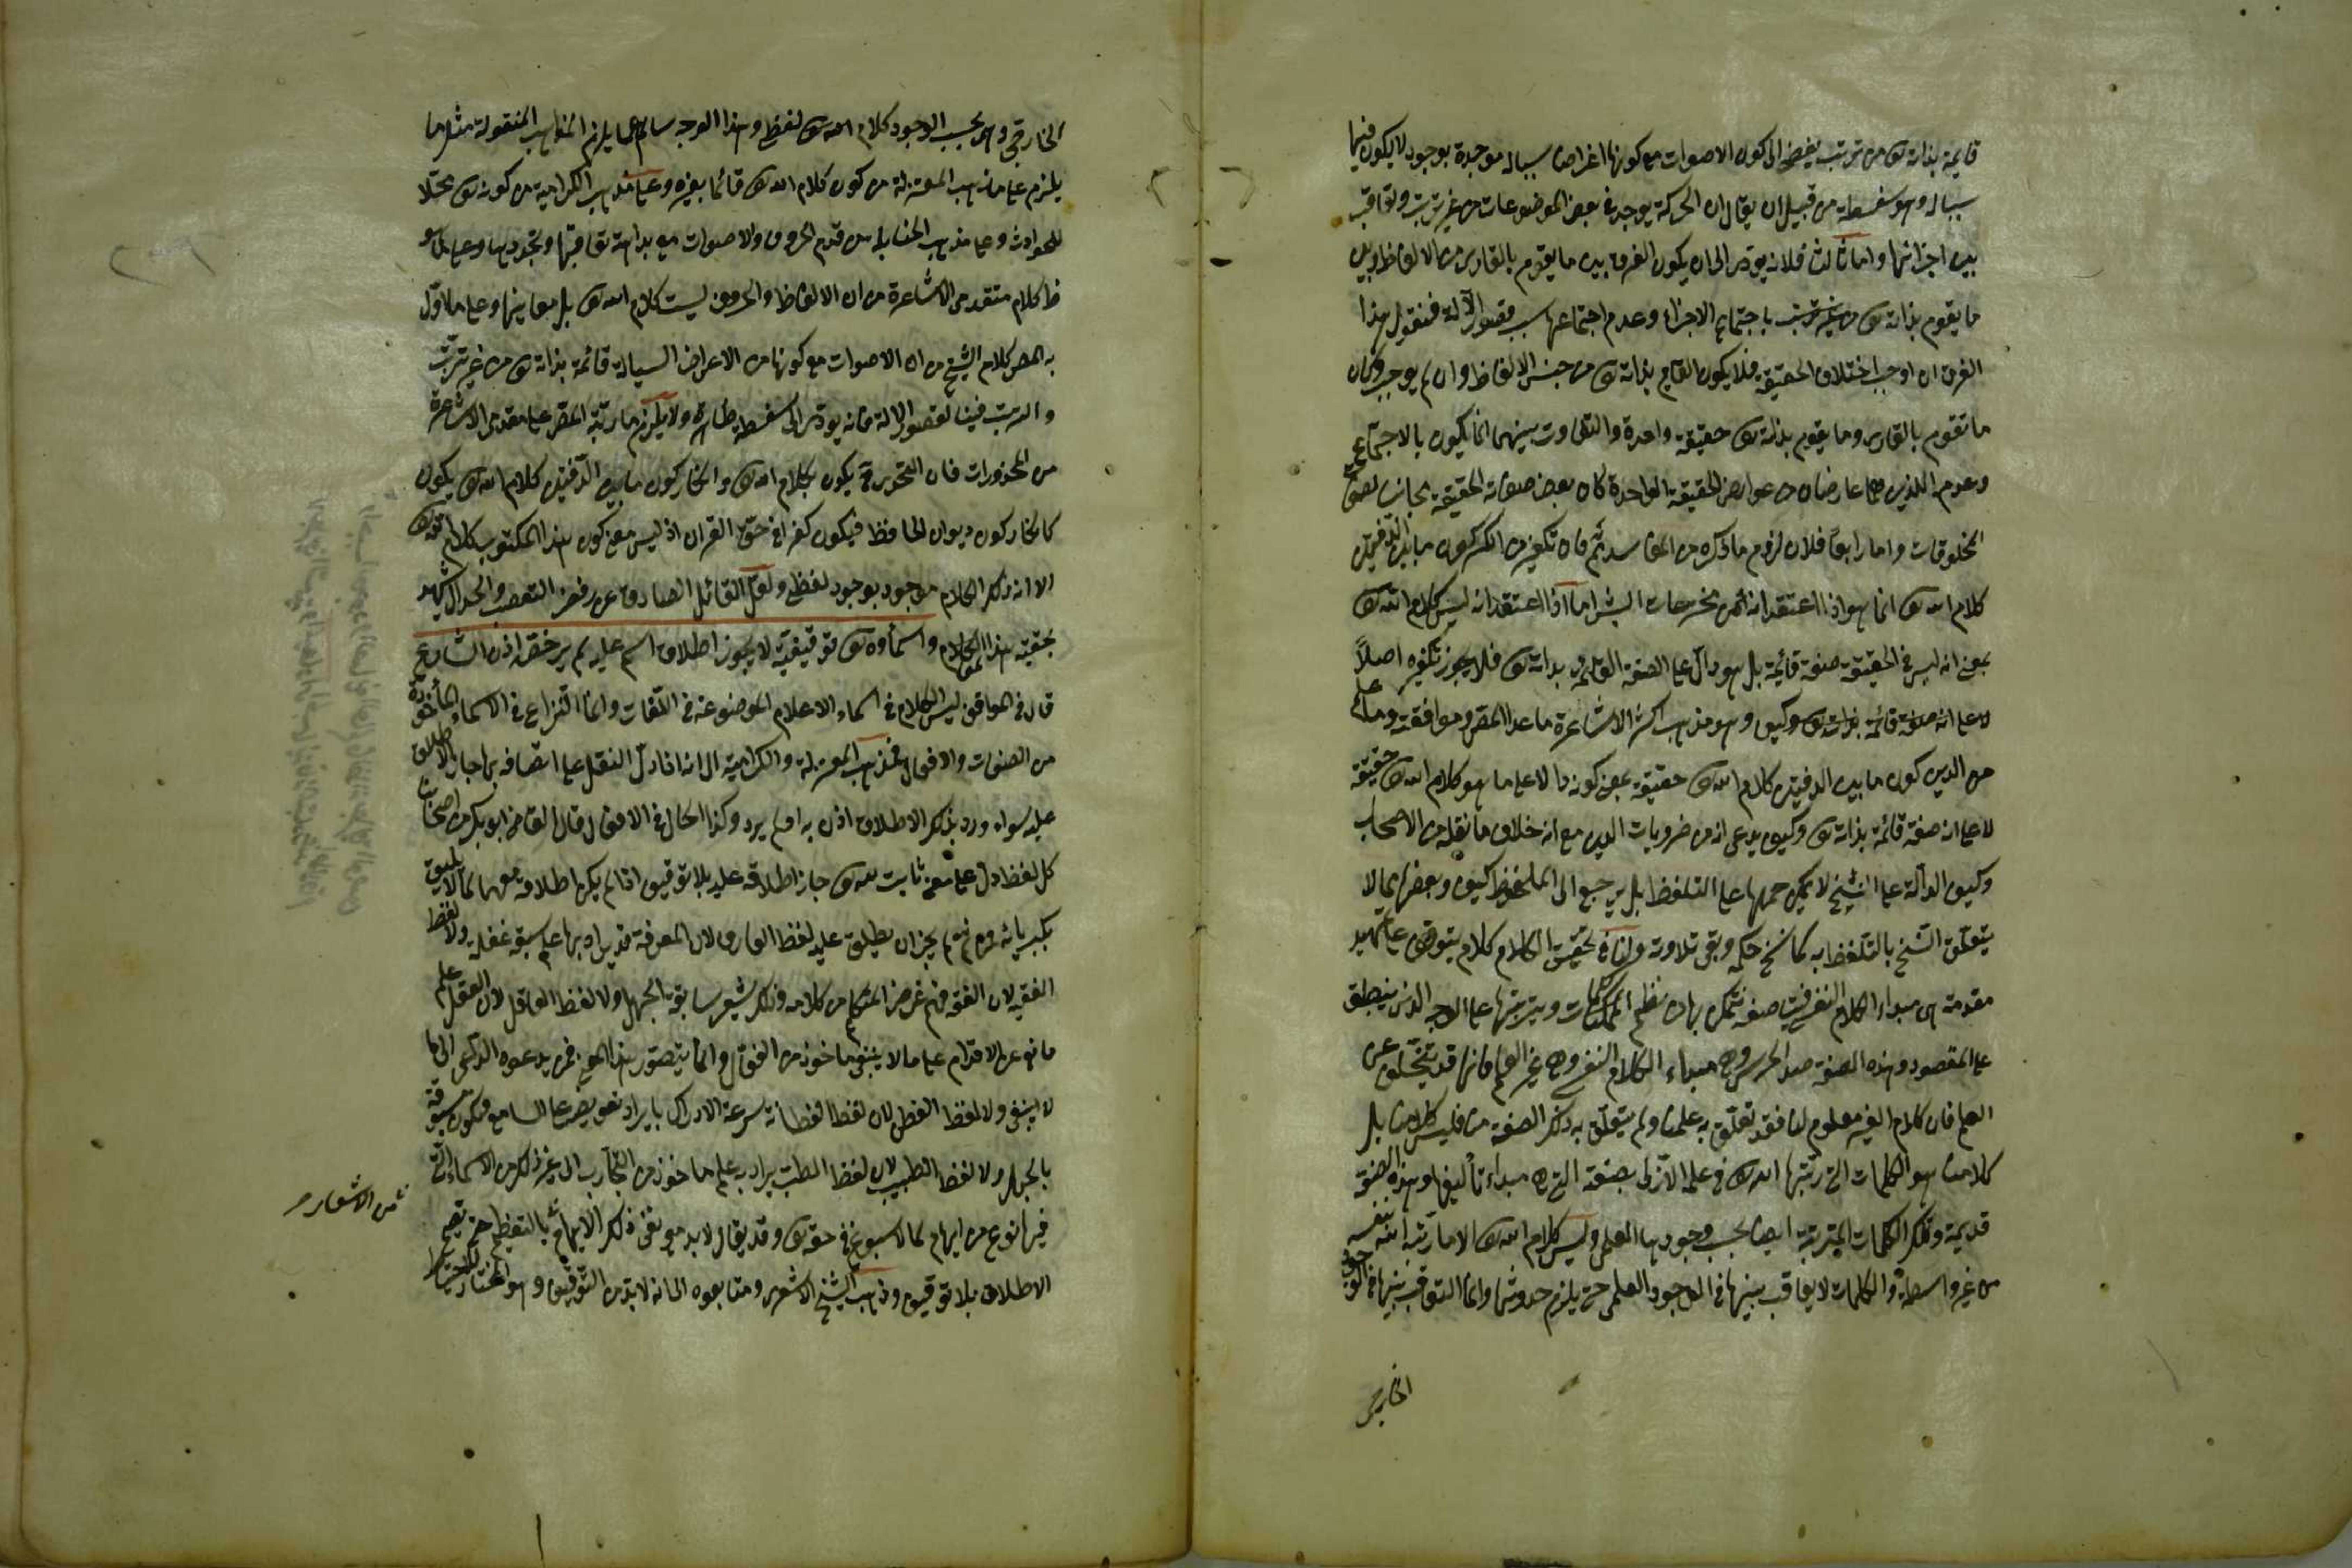 قايمة بذاته تع من ترتب يفضى الى كون الاصوات مع كونها اعراضا سياله موجدة بوجود لا يكون فيها
سياله وهو سفسطة من قبيل ان يقال ان الحركة يوجد فى بعض الموضوعات من غير ترتب وتعاقب
بين اجزائها واما ثالثا فلانه يودى الى ان يكون الفرق بين ما يقوم بالقارى من الالفاظ وبين
ما يقوم بذاته تع من غير ترتب باجتماع الاجزاء وعدم اجتماعها بسبب قصور الآلة فنقول هذا
الفرق ان اوجب اختلاف الحقيقة فلا يكون القايم بذاته تع من جنس الالفاظ وان لم يوجب وكان
ما تقوم بالقارى وما يقوم بذاته تع حقيقة واحدة والتفاوت بينهما انما يكون بالاجتماع
وعدمه اللذين هما عارضان من عوارض الحقيقة الواحدة كان بعض صفاته الحقيقة مجانس لصفات
المخلوقات واما رابعا فلان لزوم ما ذكره من المفاسد ثم فان تكفير من انكر كون ما بين الدفتين
كلام الله تع انما هو اذا اعتقد انه من مخترعات البشر اما اذا اعتقد انه ليس كلام الله تع
بمعنى انه ليس فى الحقيقة صفة قائمة بل هو دال على الصفة القائمة بذاته تع فلا يجوز تكفيره اصلاً
لا على انه صفة قائمة بذاته تع وكيف وهو مذهب اكثر الاشاعرة ما عدا المصر وموافقيه وما علم
من الدين كون ما بين الدفتين كلام الله تع حقيقة بمعنى كونه دالا على ما هو كلام الله تع حقيقة
لا على انه صفة قائمة بذاته تع وكيف يدعى انه من ضروريات الدين مع انه خلاف ما نقله من الاصحاب
وكيف الدالة على النسخ لا يمكن حملها على التلفظ بل يرجع الى الملفوظ كيف وبعضها مما لا
يتعلق النسخ بالتلفظ به كما نسخ حكمه وبقى تلاوته ولنا فى تحقيق الكلام كلام يتوقف على تمهيد
مقدمة هى مبداء الكلام النفسى فينا صفة نتمكن بها من نظم الكلمات وترتيبها على الوجه الذى ينطبق
على المقصود وهذه الصفة ضد الخرس وهى مبداء الكلام النفسى وهى غير العلم فانها قد يتخلف عن
العلم فان كلام الغير معلوم لنا فقد تعلق به علمنا ولم يتعلق به تلك الصفة منا فليس كلامنا بل
كلامنا هو الكلمات التى رتبها الله تع فى علمه الازلى بصفته التى هى مبداء تأليفها وهذه الصفة
قديمة وتلك الكلمات المترتبة ايضا بحسب وجودها العلمى وليس كلام الله تع الا ما رتبه الله بنفسه
من غير واسطة والكلمات لا تعاقب بينها فى الوجود العلمى حتى يلزم حدوثها وانما التعاقب بينها فى الوجود
الخارجى
الخارجى وهى بحسب الوجود كلام الله تع لفظى وهذا الوجه سالم عما يلزم المذاهب المنقولة مثل ما
يلزم على مذهب المعتزلة من كون كلام الله تع قائما بغيره وعلى مذهب الكرامية من كونه تع محلا
للحوادث وعلى مذهب الحنابلة من قدم الحروف والاصوات مع بداهة تعاقبها وتجددها وعلى ما هو
ظ كلام متقدمى الاشاعرة من ان الالفاظ والحروف ليست كلام الله تع بل معانيها وعلى ما اوّل
به المصر كلام الشيخ من ان الاصوات مع كونها من الاعراض السيالة قائمة بذاته تع من غير ترتب
والترتب فينا لقصور الالة فانه يودى الى سفسطة ظاهرة ولا يلزم ما رتبه المصر على متقدمى الاشاعرة
من المحذورات فان المتحدى به يكون كلام الله تع وانكار كون ما بين الدفتين كلام الله تع يكون
كانكار كون ديوان الحافظ فيكون كفرا فى حق القران اذ ليس معنى كون هذا المكتوب كلام الله تع
الا انه ذلك الكلام موجود بوجود لفظى ولعل القائل الصادق عن رفض التعصب والجدال يشهد
بحقية هذا الكلام واسماؤه تع توقيفية لا يجوز اطلاق اسم عليه لم يرد فيه اذن الشارع
قال فى المواقف ليس الكلام فى اسماء الاعلام الموضوعة فى اللغات وانما النزاع فى الاسماء المأخوذة
من الصفات والافعال فذهب المعتزلة والكرامية الى انه اذا دل العقل على اتصافه بها جاز الاطلاق
عليه سواء ورد بذلك الاطلاق اذن به او لم يرد وكذا الحال فى الافعال قال القاضى ابو بكر من اصحابنا
كل لفظ دل على معنى ثابت لله تع جاز اطلاقه عليه بلا توقيف اذا لم يكن اطلاقه موهما لما لا يليق
بكبريائه فمن ثم لم يجز ان يطلق عليه لفظ العارف لان المعرفة قد يراد بها علم سبقه غفلة ولا لفظ
الفقيه لان الفقه فهم غرض المتكلم من كلامه وذلك يشعر سابقة الجهل ولا لفظ العاقل لان العقل علم
مانع عن الاقدام على ما لا ينبغى ماخوذ من العقال وانما يتصور هذا المعنى فيمن يدعوه الداعى الى ما
لا ينبغى ولا لفظ الفطن لان لفظ الفطانة سرعة الادراك بايراد تعريضه على السامع فيكون مسبوقة
بالجهل ولا لفظ الطبيب لان لفظ الطب يراد به علم ماخوذ من التجارب الى غير ذلك من الاسماء التى
فيها نوع من ايهام لما لا يسوغ فى حقه تع وقد يقال لابد مع نفى ذلك الايهام بالتعظيم حتى يصح
من الاشعار
الاطلاق بلا توقيف وذهب الشيخ الاشعرى ومتابعوه الى انه لابد من التوقيف وهو المختار للاحتياط